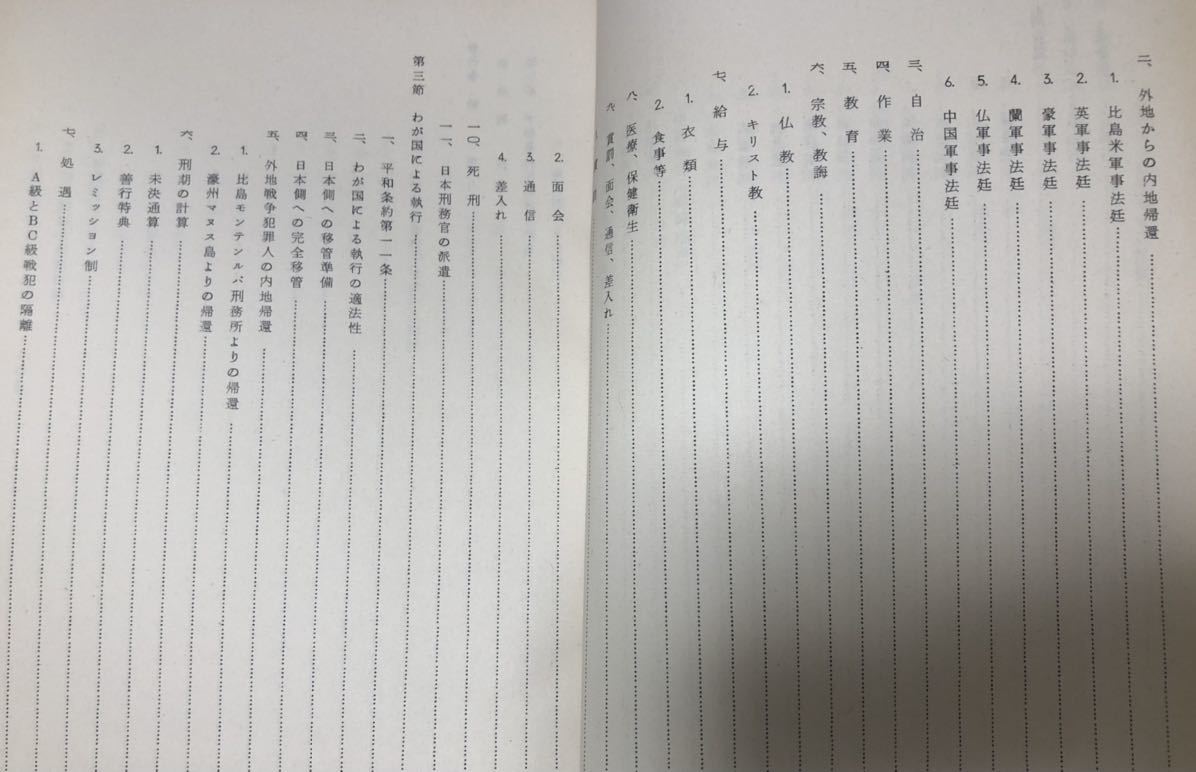 二、外地からの内地帰還
1. 比島米軍事法廷
2. 英軍事法廷
3. 豪軍事法廷
4. 蘭軍事法廷
5. 仏軍事法廷
6. 中国軍事法廷
三、自治
四、作業
五、教育
六、宗教、教誨
1. 仏教
2. キリスト教
七、給与
1. 衣類
2. 食事等
八、医療、保健衛生
九、賞罰、面会、通信、差入れ
2. 面会
3. 通信
4. 差入れ
一〇、死刑
一一、日本刑務官の派遣
第三節 わが国による執行
一、平和条約第一一条
二、わが国による執行の適法性
三、日本側への移管準備
四、日本側への完全移管
五、外地戦争犯罪人の内地帰還
1. 比島モンテンルパ刑務所よりの帰還
2. 豪州マヌス島よりの帰還
六、刑期の計算
1. 未決通算
2. 善行特典
3. レミッション制
七、処遇
1. A級とBC級戦犯の隔離